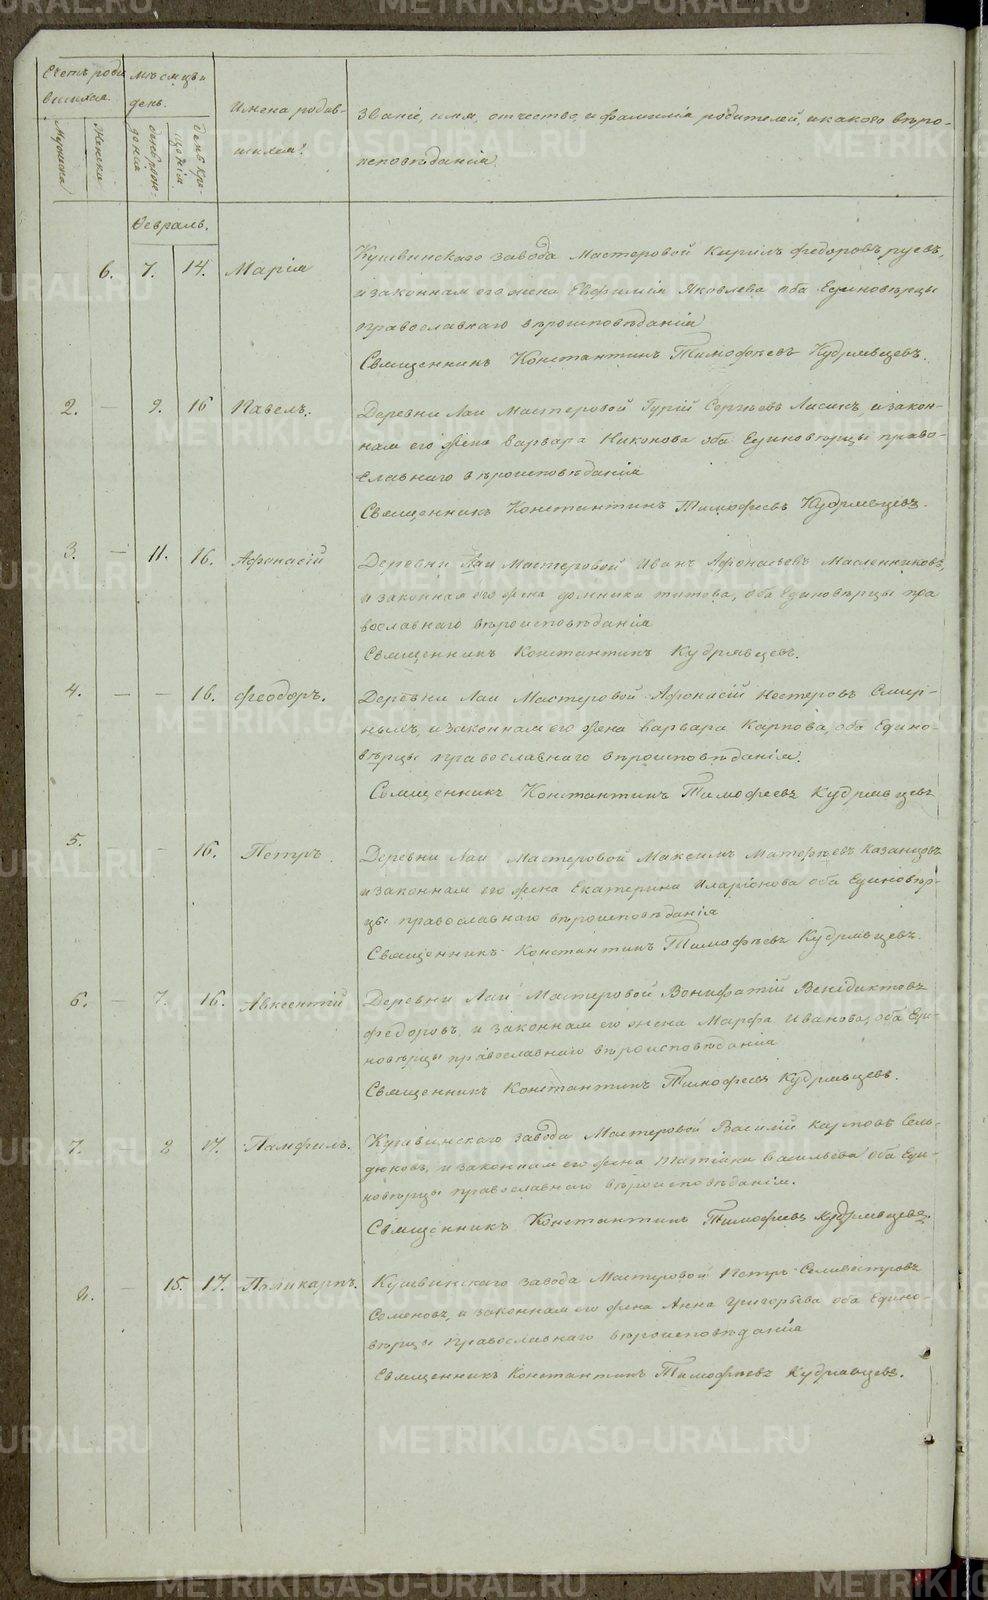 METRIKI.GASO-URAL.RU
Счетъ роди
вшихся.
Мѣсяцъ и
день.
Имена родив-
шихся.
Званіе, имя, отчество, и фамилія родителей, и какого вѣро-
исповѣданія.
Мужеска
Женска
рожденія
крещенія
Февраль.
6. 7. 14. Марія
Кушвинскаго завода Мастеровой Кирилъ Федоровъ
и законная его жена Евфимія Яковлева оба Единовѣрцы
православнаго вѣроисповѣданія
Священникъ Константинъ Тимофеевъ Кудрявцевъ.
2. — 9. 16 Павелъ.
Деревни Лаи Мастеровой Гурій Сергѣевъ Лисинъ, и закон-
ная его жена Варвара Никонова оба Единовѣрцы право-
славнаго вѣроисповѣданія
Священникъ Константинъ Тимофеевъ Кудрявцевъ.
3. — 11. 16. Афонасій
Деревни Лаи Мастеровой Иванъ Афонасьевъ Масленниковъ,
и законная его жена Домника Титова, оба Единовѣрцы пра
вославнаго вѣроисповѣданія
Священникъ Константинъ Кудрявцевъ.
4. — — 16. Феодоръ.
Деревни Лаи Мастеровой Афонасій Нестеровъ Смир-
ныхъ, и законная его жена Варвара Карпова, оба Едино-
вѣрцы православнаго вѣроисповѣданія.
Священникъ Константинъ Тимофеевъ Кудрявцевъ
5. — 16. Петръ.
Деревни Лаи Мастеровой Максимъ Матфѣевъ Казанцовъ
и законная его жена Екатерина Иларіонова оба Единовѣр-
цы православнаго вѣроисповѣданія
Священникъ Константинъ Тимофѣевъ Кудрявцевъ.
6. — 7. 16. Авксентій
Деревни Лаи Мастеровой Вонифатій Венидиктовъ
Федоровъ, и законная его жена Марфа Иванова, оба Еди-
новѣрцы православнаго вѣроисповѣданія
Священникъ Константинъ Тимофеевъ Кудрявцевъ.
7. 2 17. Памфилъ.
завода Мастеровой Василій Карповъ Сель-
дюковъ, и законная его жена Татіана Васильева оба Еди-
новѣрцы православнаго вѣроисповѣданія.
Священникъ Константинъ Тимофеевъ Кудрявцевъ.
— 15. 17. Поликарпъ.
Кушвинскаго завода Мастеровой Петръ Селивестровъ
Семеновъ, и законная его жена Анна Григорьева оба Едино-
вѣрцы православнаго вѣроисповѣданія
Священникъ Константинъ Тимофѣевъ Кудрявцевъ.
METRIKI.GASO-URAL.RU